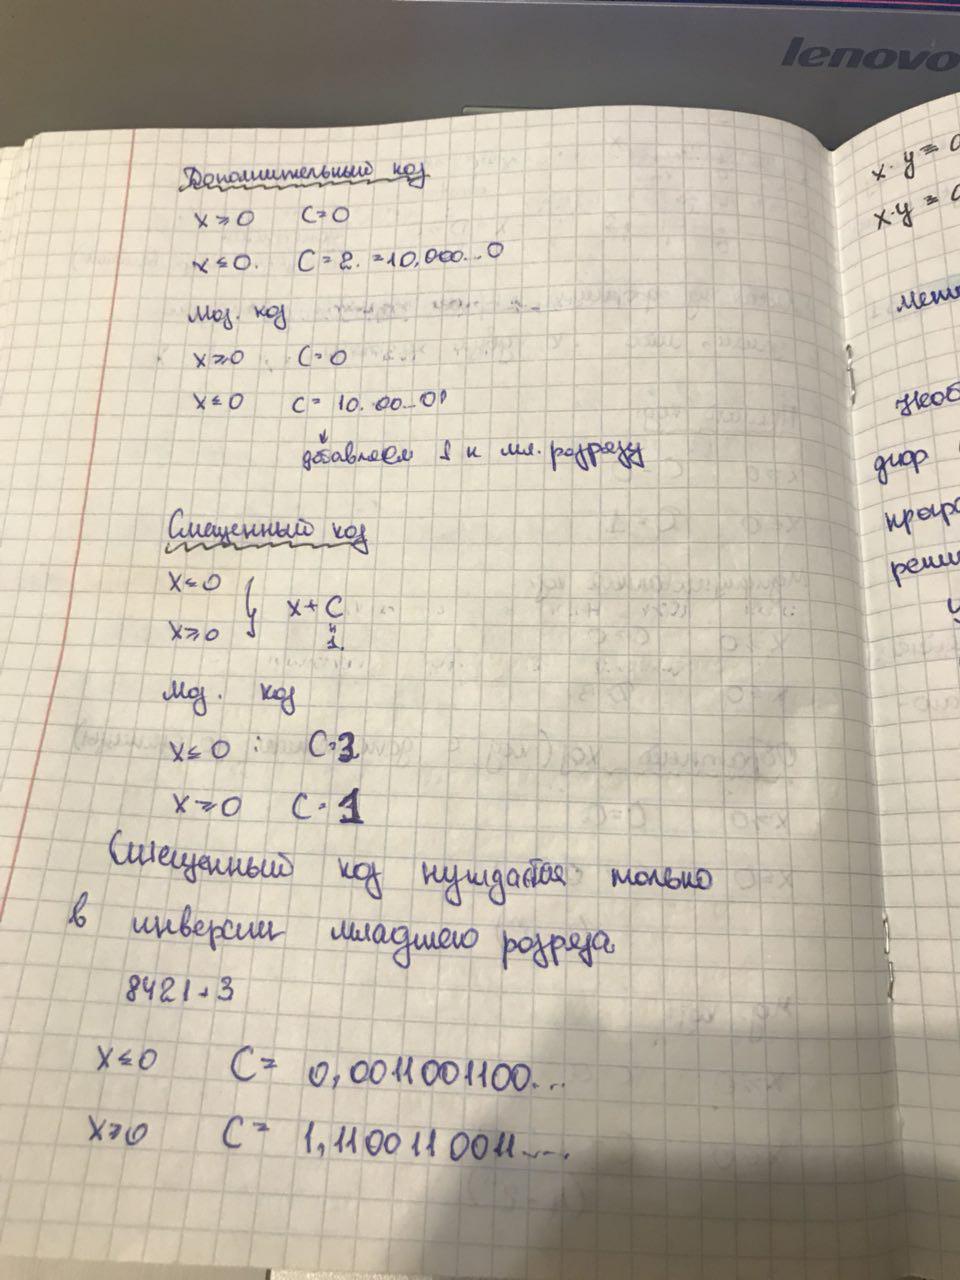 lenovo
Дополнительный код
x ≥ 0 C = 0
x ≤ 0. C = 2. = 10,000...0
Мод. код
x ≥ 0 C = 0
x ≤ 0 C = 10.00...01
добавляем 1 к мл. розрязу
Смещенный код
x ≤ 0
x ≥ 0
x + C
"
1.
Мод. код
x ≤ 0 : C = 3
x ≥ 0 C = 1
Смещенный код нуждается только
в инверсии младшего розряза
8421+3
x ≤ 0 C = 0,0011001100...
x ≥ 0 C = 1,1100110011...
x·y =
x·y =